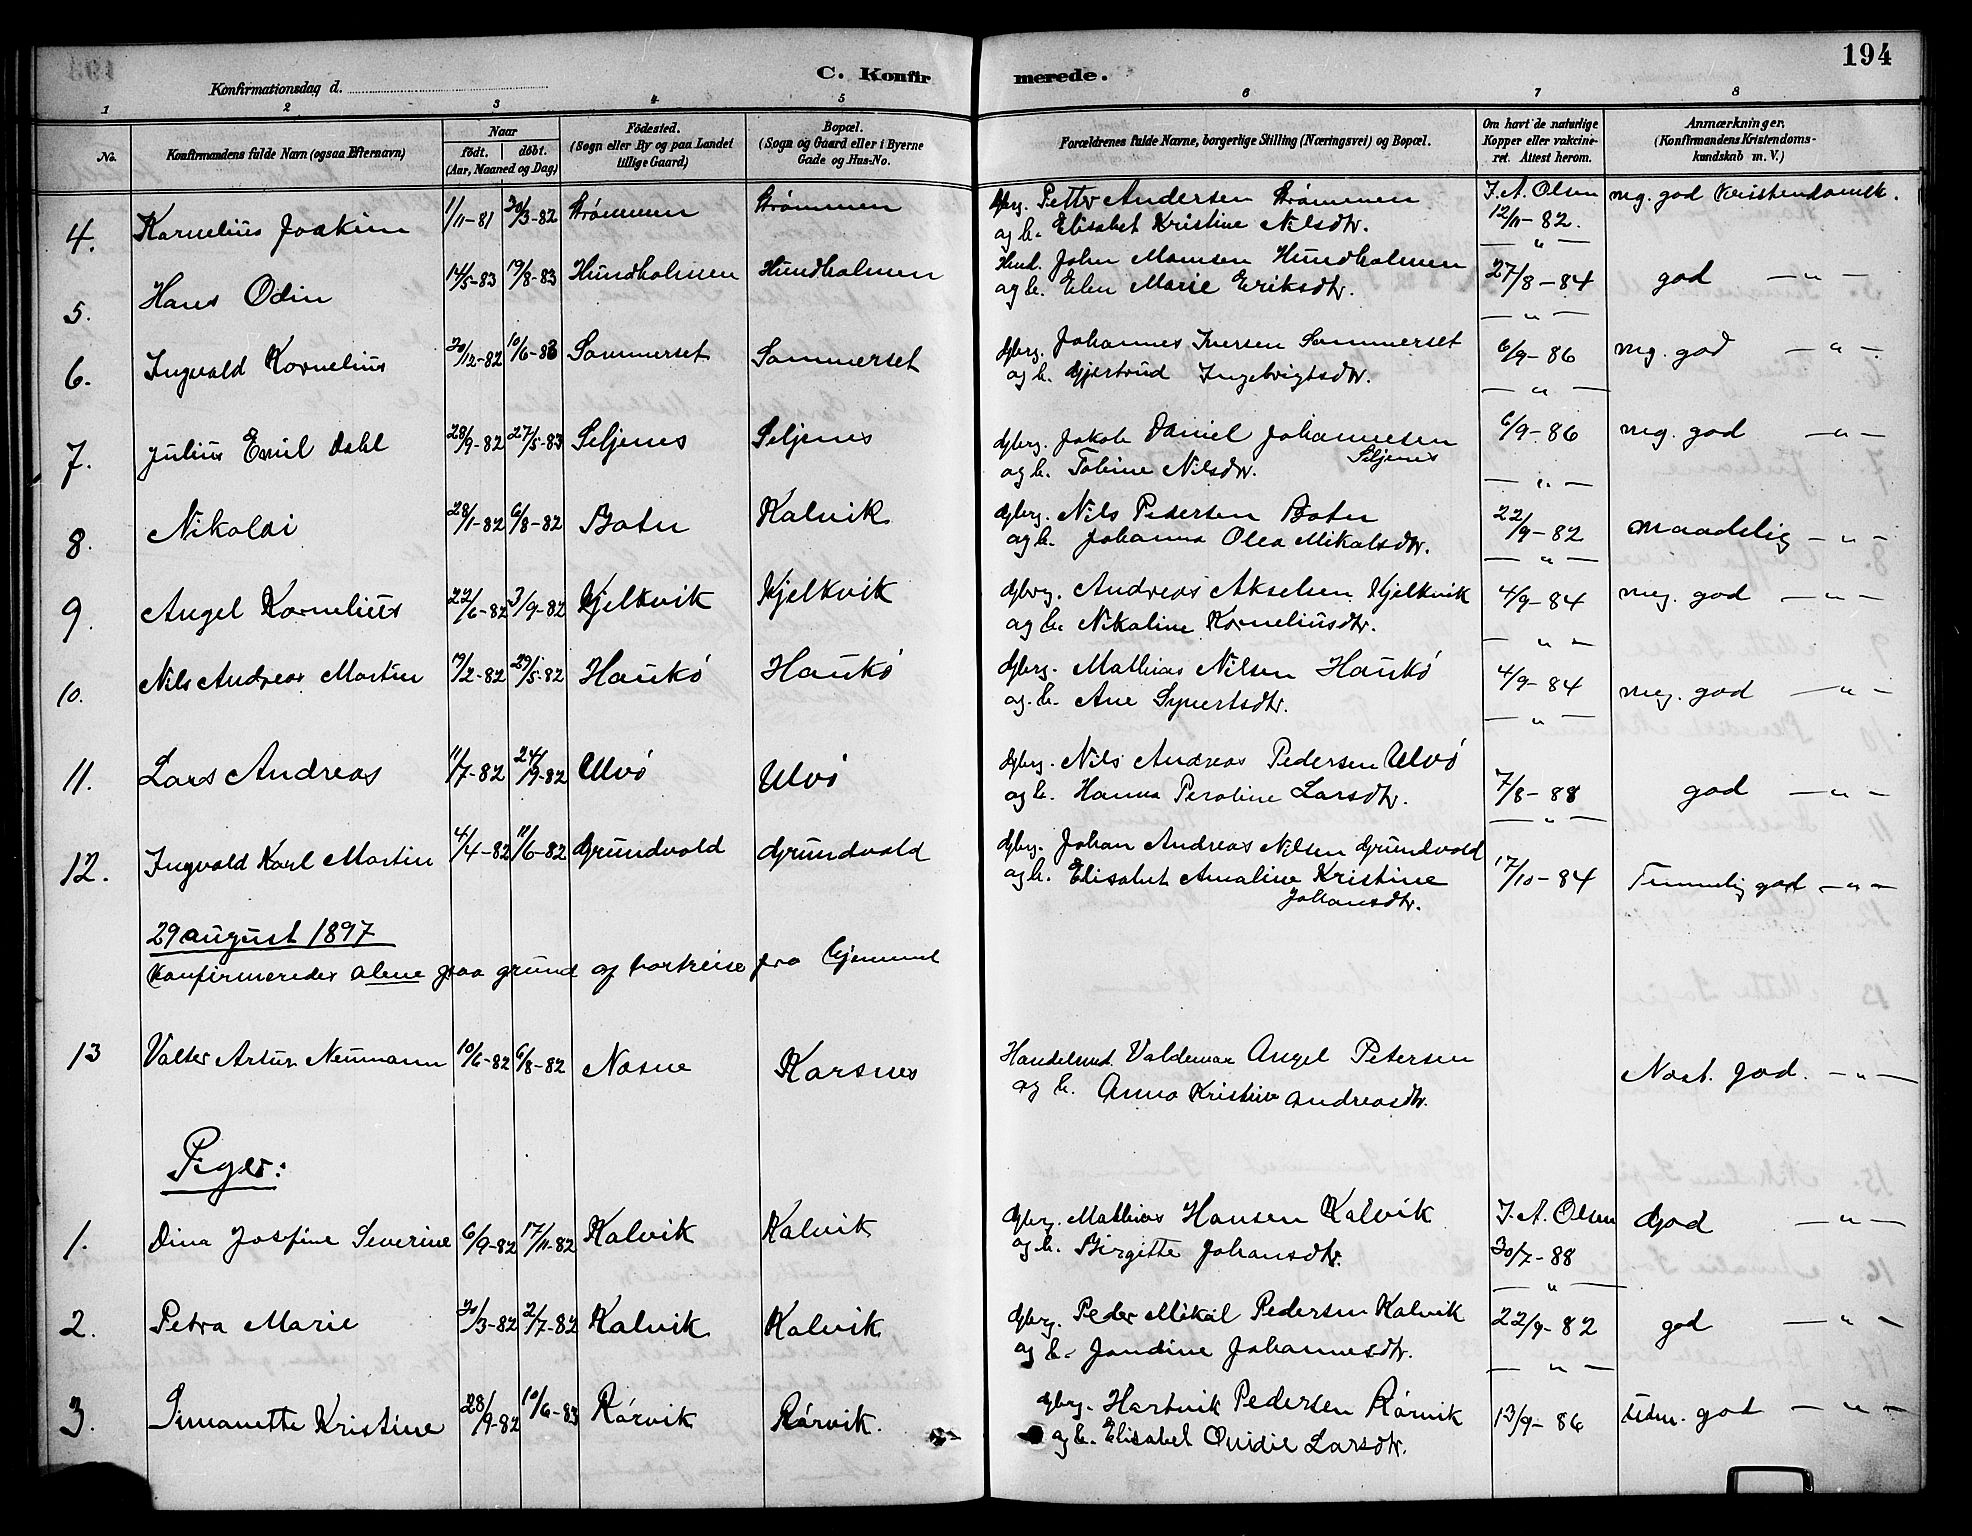 194
C. Konfirmerede.
Konfirmationsdag d.
1 2 3 4 5 6 7 8
No. Konfirmandens fulde Navn (ogsaa Efternavn) Naar født. døbt. (Aar, Maaned og Dag) Fødested. (Sogn eller By og paa Landet tillige Gaard) Bopæl. (Sogn og Gaard eller i Byerne Gade og Hus-No.) Forældrenes fulde Navne, borgerlige Stilling (Næringsvei) og Bopæl. Om havt de naturlige Kopper eller vakcineret. Attest herom. Anmærkninger, (Konfirmandens Kristendomskundskab m. V.)
4. Kornelius Joakim 1/11-81 20/3-82 Strømmen Strømmen Gbrg. Petter Andersen Strømmen J. A. Olsen meg. god Kristendomsk.
og h. Elisabet Kristine Nilsdtr. 12/11-82.
5. Hans Odin 14/5-83 19/8-83 Hundholmen Hundholmen Hmd. Johan Monsen Hundholmen — " — god — " —
og h. Elen Marie Eriksdtr. 27/8-84
6. Ingvald Kornelius 20/12-82 10/6-83 Sommerset Sommerset Gbrg. Johannes Iversen Sommerset — " — meg. god — " —
og h. Gjertrud Ingebrigtsdtr. 6/9-86
7. Julius Emil Dahl 28/9-82 27/5-83 Seljenes Seljenes Gbrg. Jakob Daniel Johannesen — " — meg. god — " —
Seljenes 6/9-86
og h. Tobine Nilsdtr.
8. Nikolai 28/1-82 6/8-82 Botn Kalvik Gbrg. Nils Pedersen Botn — " — maadelig — " —
og h. Johanna Olea Mikalsdtr. 22/9-82
9. Angel Kornelius 22/6-82 3/9-82 Kjelkvik Kjelkvik Gbrg. Andreas Akselsen Kjelkvik — " — meg. god — " —
og h. Nikoline Korneliusdtr. 4/9-84
10. Nils Andreas Martin 19/2-82 29/5-82 Haukø Haukø Gbrg. Mathias Nilsen Haukø — " — meg. god — " —
og. h. Ane Synertsdtr. 4/9-84
11. Lars Andreas 11/7-82 24/9-82 Ulvø Ulvø Gbrg. Nils Andreas Pedersen Ulvø — " — god — " —
og h. Hanna Peroline Larsdtr. 7/8-88
12. Ingvald Karl Martin 4/4-82 11/6-82 Grundvold Grundvold Gbrg. Johan Andreas Nilsen Grundvold — " — Temmelig god — " —
og h. Elisabet Amaline Kristine 17/10-84
Johansdtr.
29 august 1897
Konfirmeredes alene paa grund af bortreise fra hjemmet
13 Valter Artur Neumann 10/6-82 6/8-82 Nosne Korsnes Handelsmd. Valdemar Angel Petersen Nost. god. — " —
og h. Anna Kristine Andreasdtr.
Piger:
1. Dina Josefine Severine 6/9-82 17/11-82 Kalvik Kalvik Gbrg. Mathias Hansen Kalvik J. A. Olsen God — " —
og h. Birgitte Johansdtr. 30/7-88
2. Petra Marie 20/3-82 2/7-82 Kalvik Kalvik Gbrg. Peder Mikal Pedersen Kalvik — " — god — " —
og h. Jondine Johannesdtr. 22/9-82
3. Simonette Kristine 28/9-82 10/6-83 Rørvik Rørvik. Gbrg. Hartvik Pedersen Rørvik — " — Udm. god — " —
og h. Elisabet Ovidie Larsdtr. 13/9-86